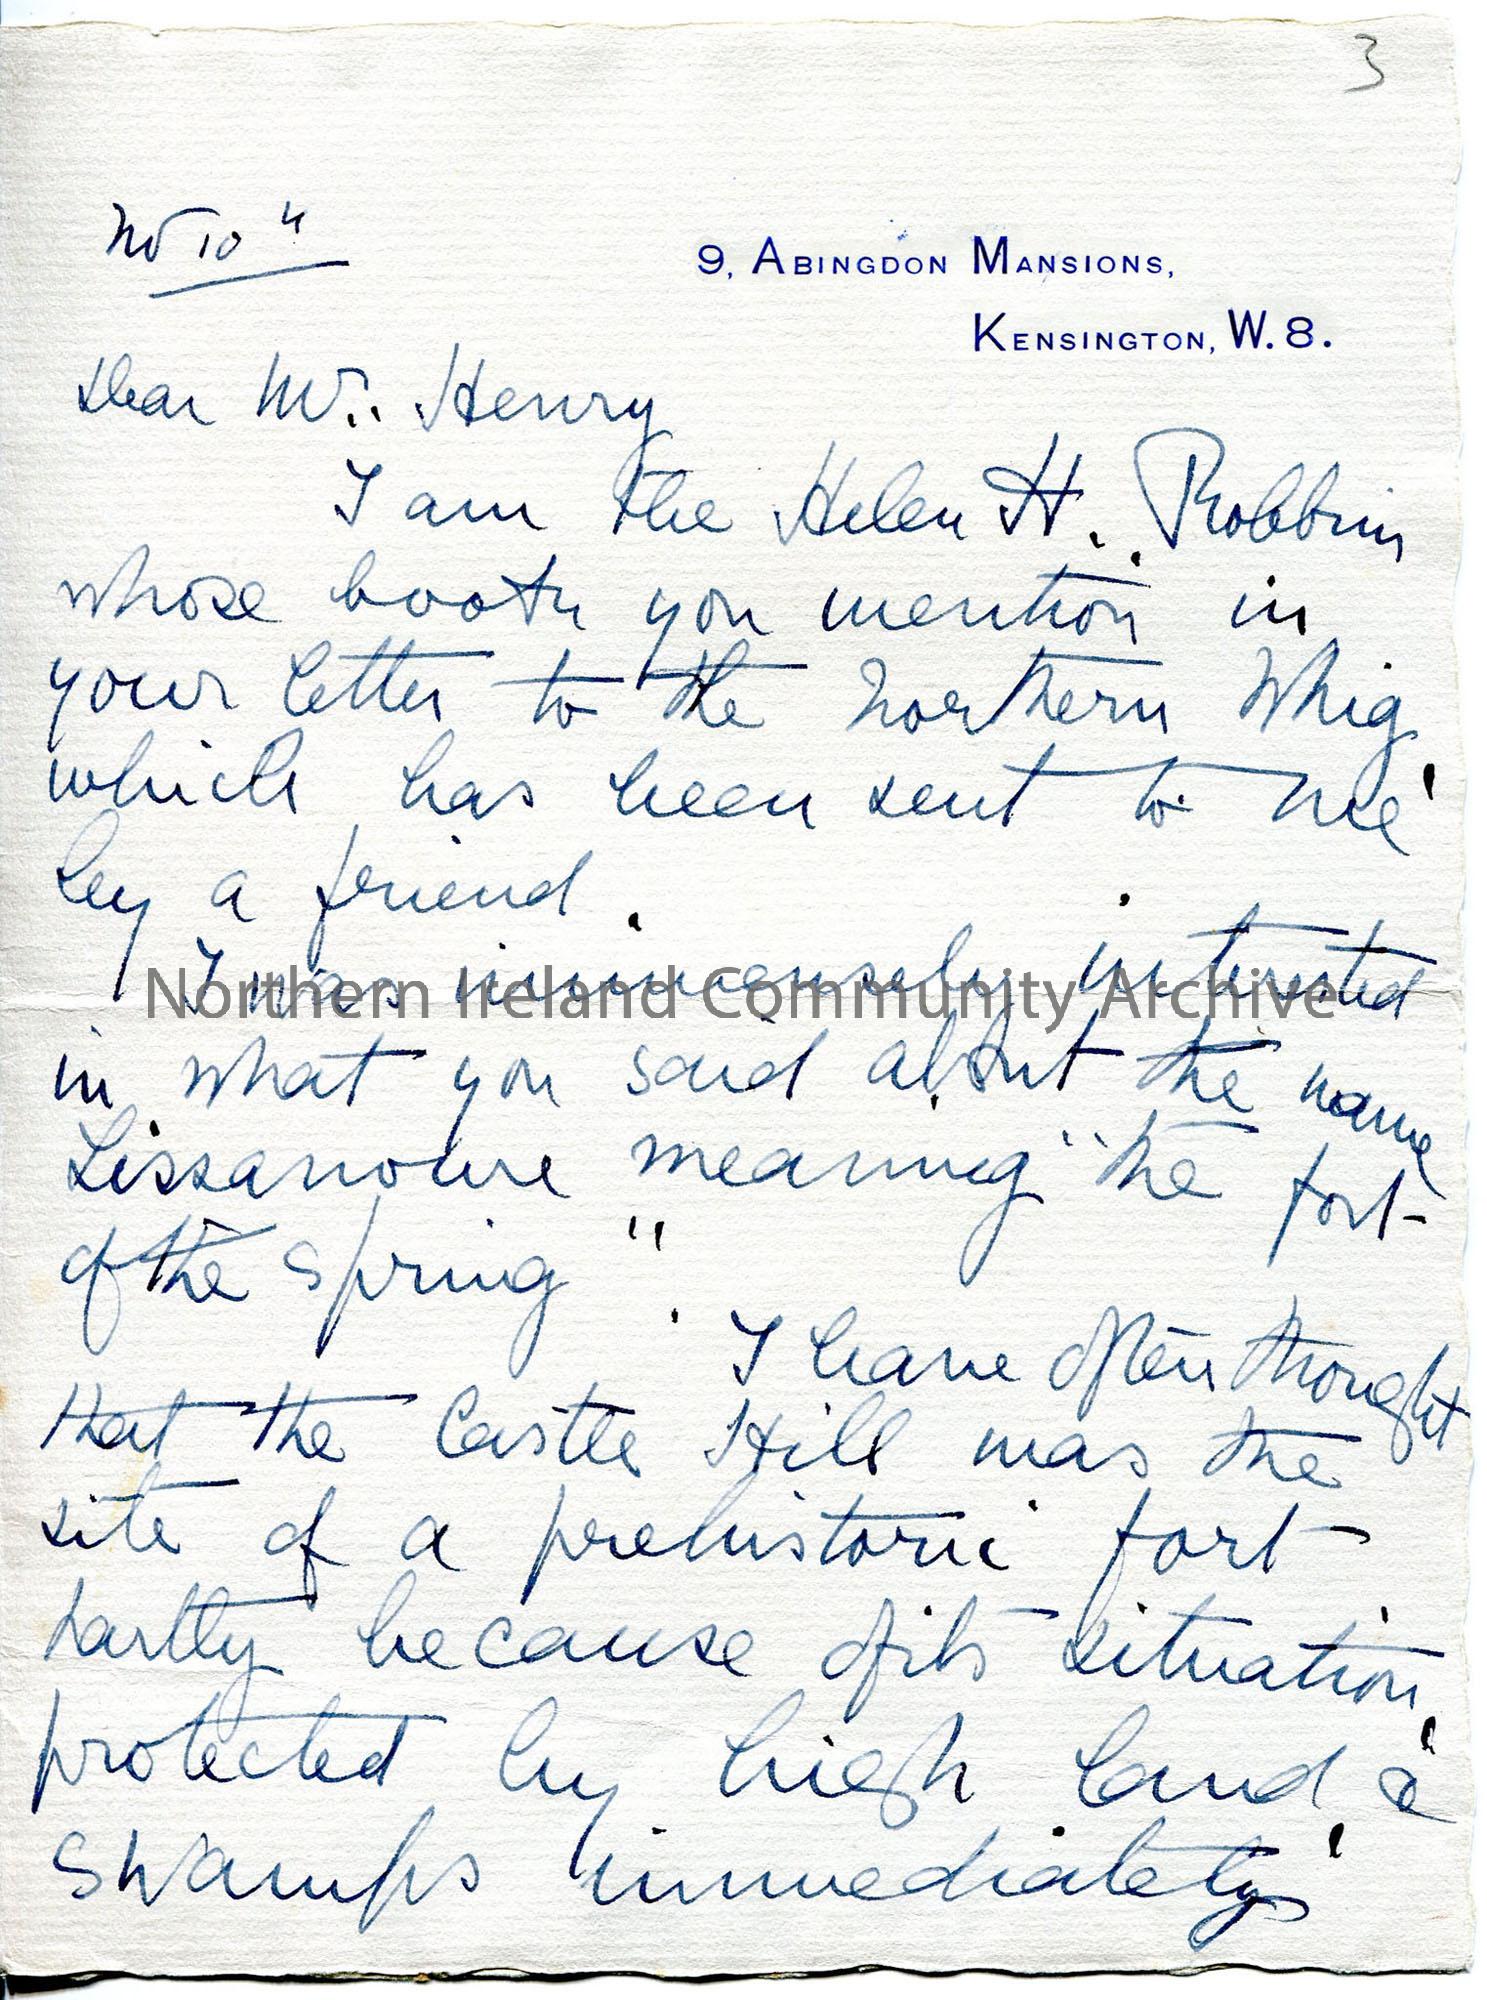 3
No 10"
9, ABINGDON MANSIONS,
KENSINGTON, W. 8.
Dear Mr. Henry
I am the Helen H. Robbins
whose book you mention in
your letter to the Northern Whig
which has been sent to me
by a friend.
I was immensely interested
in what you said about the name
Lissanoure meaning "the fort
of the Spring".
I have often thought
that the Castle Hill was the
site of a prehistoric fort -
partly because of its situation,
protected by high land &
swamps immediately
Northern Ireland Community Archive